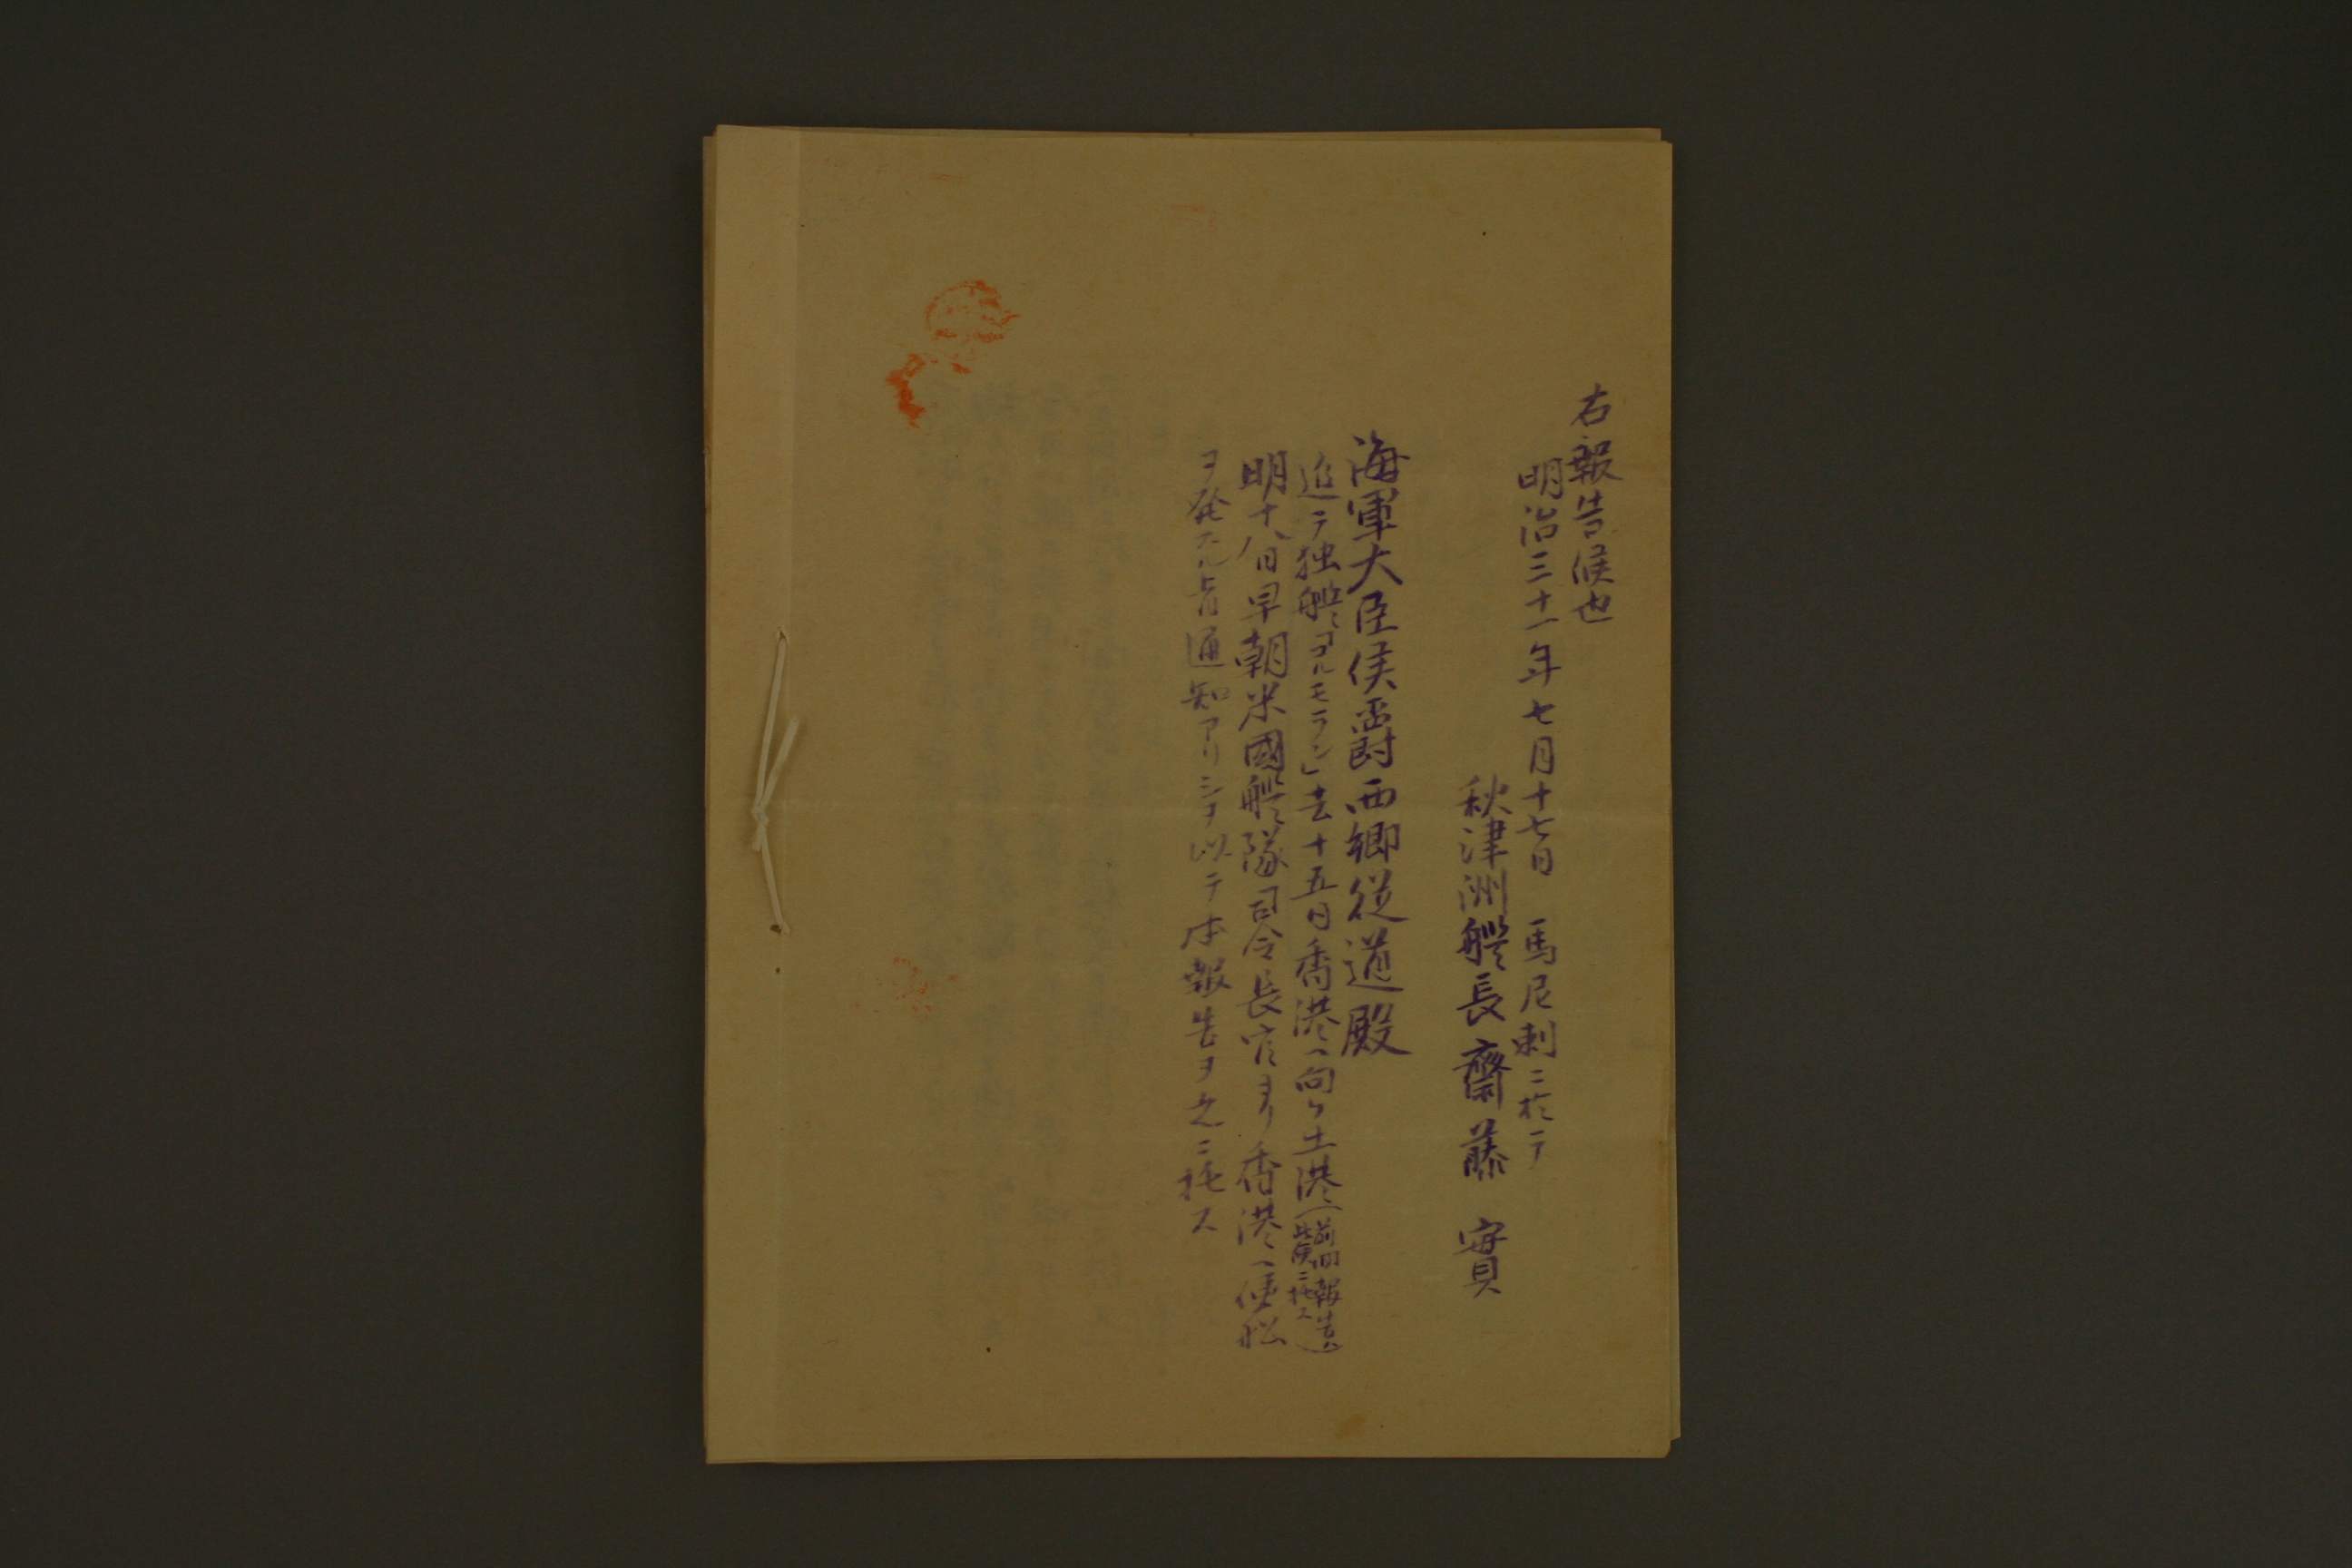 右報告候也
明治三十一年七月十七日　馬尼剌ニ於テ
秋津洲艦長齋藤　實
海軍大臣侯爵西郷從道殿
追テ独艦「コルモラン」去十五日香港ヘ向ケ出港（前回報告ハ此便ニ托ス）
明十八日早朝米國艦隊司令長官ヨリ香港ヘ便船
ヲ発スル旨通知アリシヲ以テ本報告ヲ之ニ托ス